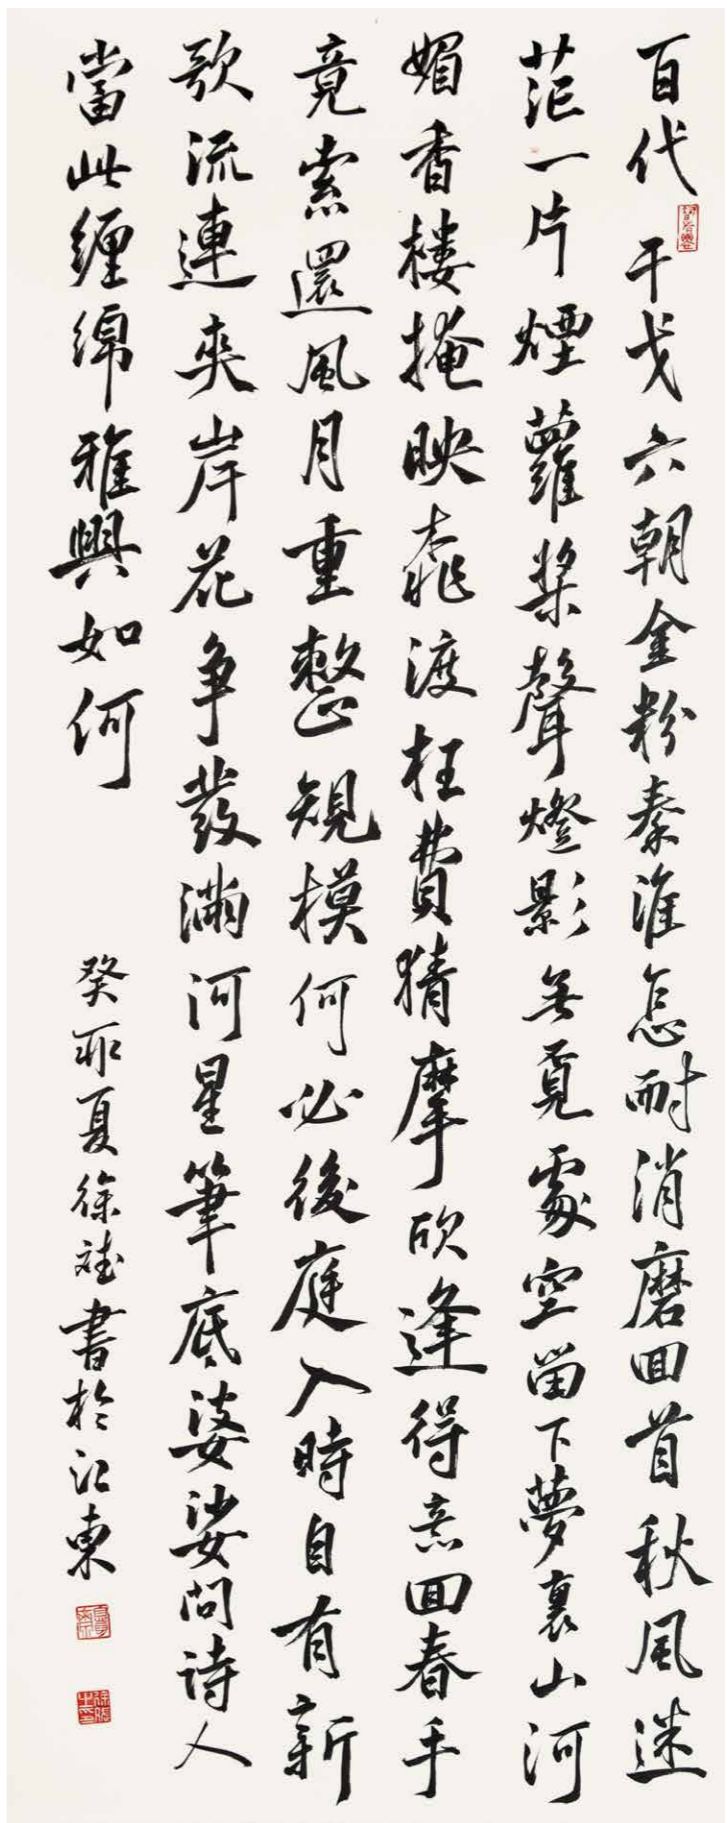 百代干戈六朝金粉秦淮怎耐消磨回首秋風迷
茫一片煙蘿槳聲燈影無覓處空留下夢裏山河
媚香樓掩映桃渡枉費猜摩欣逢得意回春手
竟索還風月重整規模何必後庭入時自有新
歌流連夾岸花爭發滿河星筆底婆娑問诗人
當此纏綿雅興如何
癸卯夏徐斌書於江東